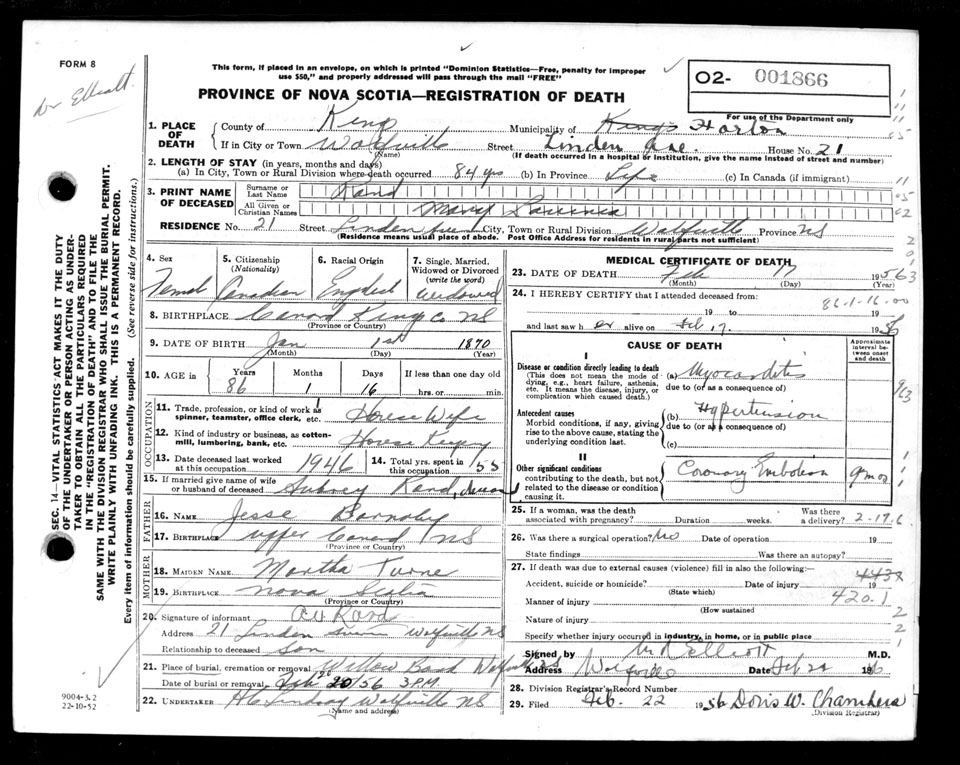 FORM 8
Dr Elliott.
This form, if placed in an envelope, on which is printed "Dominion Statistics—Free, penalty for improper
use $50," and properly addressed will pass through the mail "FREE"
PROVINCE OF NOVA SCOTIA—REGISTRATION OF DEATH
O2- 001866
For use of the Department only
1. PLACE OF DEATH
County of Kings Municipality of Kings Horton
If in City or Town Wolfville Street Linden Ave. House No. 21
(Name) (If death occurred in a hospital or institution, give the name instead of street and number)
2. LENGTH OF STAY (in years, months and days)
(a) In City, Town or Rural Division where death occurred 84 yrs (b) In Province Life (c) In Canada (if immigrant)
3. PRINT NAME OF DECEASED
Surname or Last Name Rand
All Given or Christian Names Mary
RESIDENCE No. 21 Street Linden Ave City, Town or Rural Division Wolfville Province NS
(Residence means usual place of abode. Post Office Address for residents in rural parts not sufficient)
4. Sex Female
5. Citizenship (Nationality) Canadian
6. Racial Origin English
7. Single, Married, Widowed or Divorced (write the word) widowed
8. BIRTHPLACE Canard Kings Co. NS
(Province or Country)
9. DATE OF BIRTH Jan 1st 1870
(Month) (Day) (Year)
10. AGE in Years 86 Months 1 Days 16 If less than one day old
hrs. or min.
OCCUPATION
11. Trade, profession, or kind of work as spinner, teamster, office clerk, etc. House Wife
12. Kind of industry or business, as cotton-mill, lumbering, bank, etc. House Keeping
13. Date deceased last worked at this occupation 1946 14. Total yrs. spent in this occupation 55
15. If married give name of wife or husband of deceased Aubrey Rand,
FATHER
16. NAME Jesse Barnaby
17. BIRTHPLACE Upper Canard NS
(Province or Country)
MOTHER
18. MAIDEN NAME Martha
19. BIRTHPLACE Nova Scotia
(Province or Country)
20. Signature of informant Rand
Address 21 Linden Wolfville NS
Relationship to deceased Son
21. Place of burial, cremation or removal Willow Bank Wolfville NS
Date of burial or removal Feb 20/56 3 P.M.
22. UNDERTAKER Lindsay Wolfville NS
(Name and address)
MEDICAL CERTIFICATE OF DEATH
23. DATE OF DEATH Feb 17 1956
(Month) (Day) (Year)
24. I HEREBY CERTIFY that I attended deceased from: 86-1-16-00
19 to 19
and last saw her alive on Feb 17. 1956
CAUSE OF DEATH
Approximate interval between onset and death
I
Disease or condition directly leading to death
(This does not mean the mode of dying, e.g., heart failure, asthenia, etc. It means the disease, injury, or complication which caused death.)
(a) Myocarditis
due to (or as a consequence of)
Antecedent causes
Morbid conditions, if any, giving rise to the above cause, stating the underlying condition last.
(b) Hypertension
due to (or as a consequence of)
(c)
II
Other significant conditions
contributing to the death, but not related to the disease or condition causing it.
Coronary Embolism 9 mos
25. If a woman, was the death associated with pregnancy? Duration weeks. Was there a delivery? 2-17.6
26. Was there a surgical operation? No Date of operation 19
State findings Was there an autopsy?
27. If death was due to external causes (violence) fill in also the following:— 443X
Accident, suicide or homicide? Date of injury 19
(State which)
Manner of injury 420.1
(How sustained
Nature of injury
Specify whether injury occurred in industry, in home, or in public place
Signed by Elliott M.D.
Address Wolfville Date Feb 22 1956
28. Division Registrar's Record Number
29. Filed Feb. 22 1956 Doris W. Chambers
(Division Registrar)
SEC. 14—VITAL STATISTICS ACT MAKES IT THE DUTY
OF THE UNDERTAKER OR PERSON ACTING AS UNDER-
TAKER TO OBTAIN ALL THE PARTICULARS REQUIRED
IN THE "REGISTRATION OF DEATH" AND TO FILE THE
SAME WITH THE DIVISION REGISTRAR WHO SHALL ISSUE THE BURIAL PERMIT.
WRITE PLAINLY WITH UNFADING INK. THIS IS A PERMANENT RECORD.
Every item of information should be carefully supplied. (See reverse side for instructions.)
9004-3.2
22-10-52